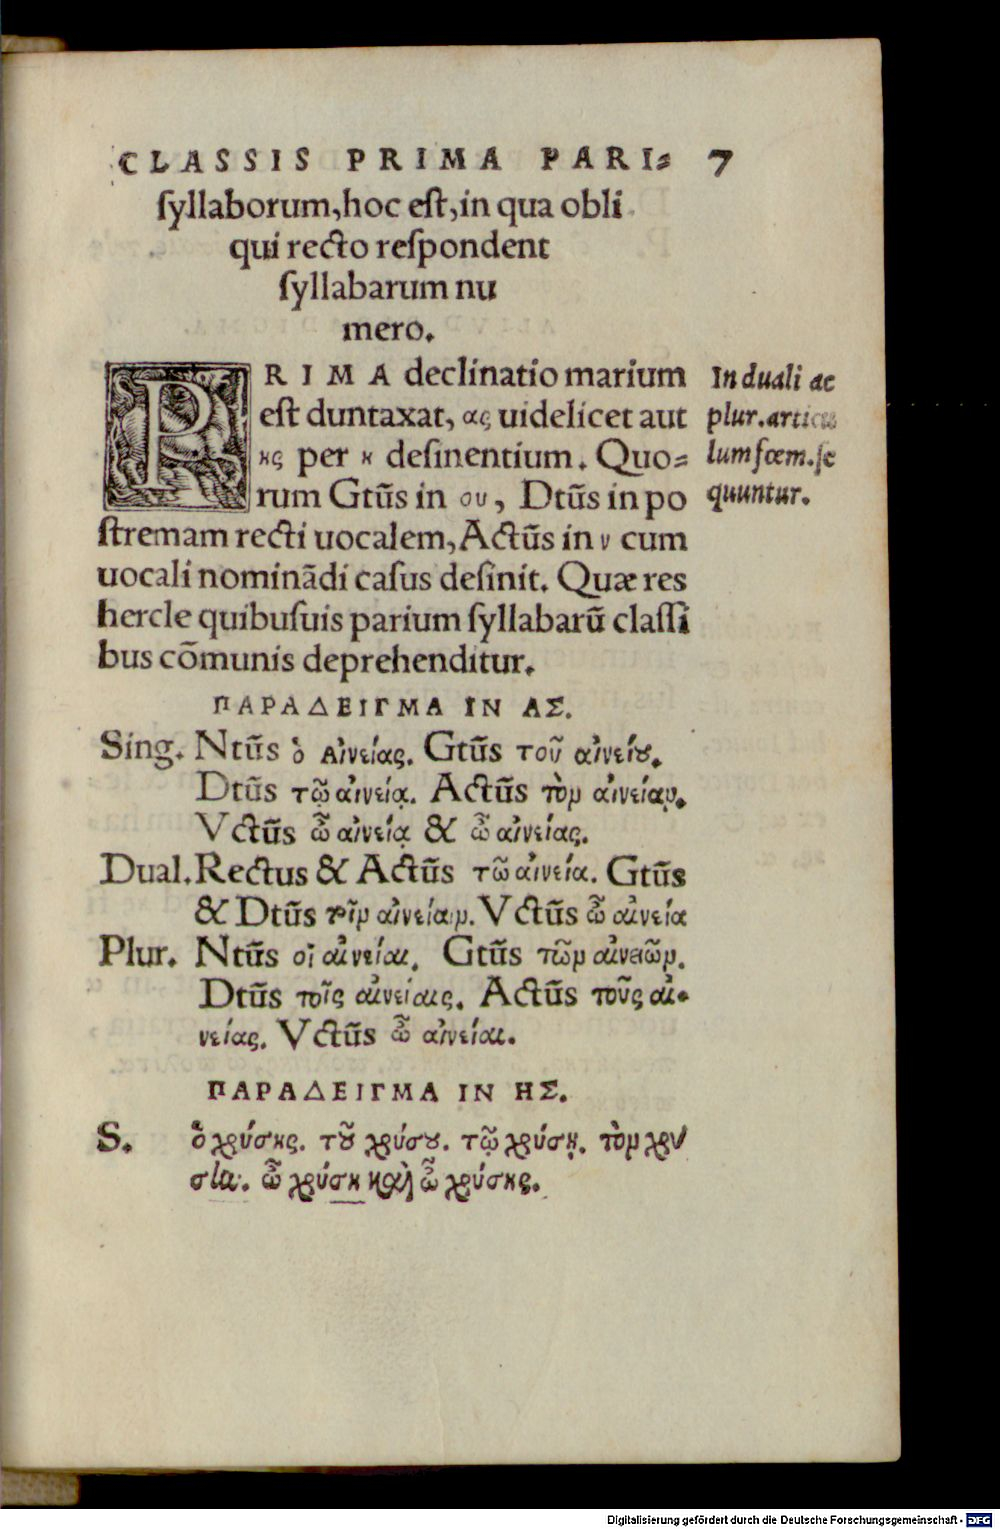 CLASSIS PRIMA PARI⸗ 7
syllaborum, hoc est, in qua obli
qui recto respondent
syllabarum nu
mero.
PRIMA declinatio marium
est duntaxat, ας uidelicet aut
ης per η desinentium. Quo⸗
rum Gtūs in ου, Dtūs in po
stremam recti uocalem, Actūs in ν cum
uocali nominādi casus desinit. Quæ res
hercle quibusuis parium syllabarū classi
bus cōmunis deprehenditur.
In duali ac
plur. articu
lum fœm. se
quuntur.
ΠΑΡΑΔΕΙΓΜΑ IN ΑΣ.
Sing. Ntūs ὁ Αἰνείας. Gtūs τοῦ αἰνείου.
Dtūs τῷ αἰνείᾳ. Actūs τὸν αἰνείαν.
Vctūs ὦ αἰνείᾳ & ὦ αἰνείας.
Dual. Rectus & Actūs τῶ αἰνεία. Gtūs
& Dtūs τοῖν αἰνείαιν. Vctūs ὦ αἰνεία
Plur. Ntūs οἱ αἰνείαι. Gtūs τῶν αἰνειῶν.
Dtūs τοῖς αἰνείαις. Actūs τοὺς αἰ⸗
νείας. Vctūs ὦ αἰνείαι.
ΠΑΡΑΔΕΙΓΜΑ IN ΗΣ.
S. ὁ χρύσης. τοῦ χρύσου. τῷ χρύσῃ. τὸν χρύ
ὦ χρύση καὶ ὦ χρύσης.
Digitalisierung gefördert durch die Deutsche Forschungsgemeinschaft - DFG